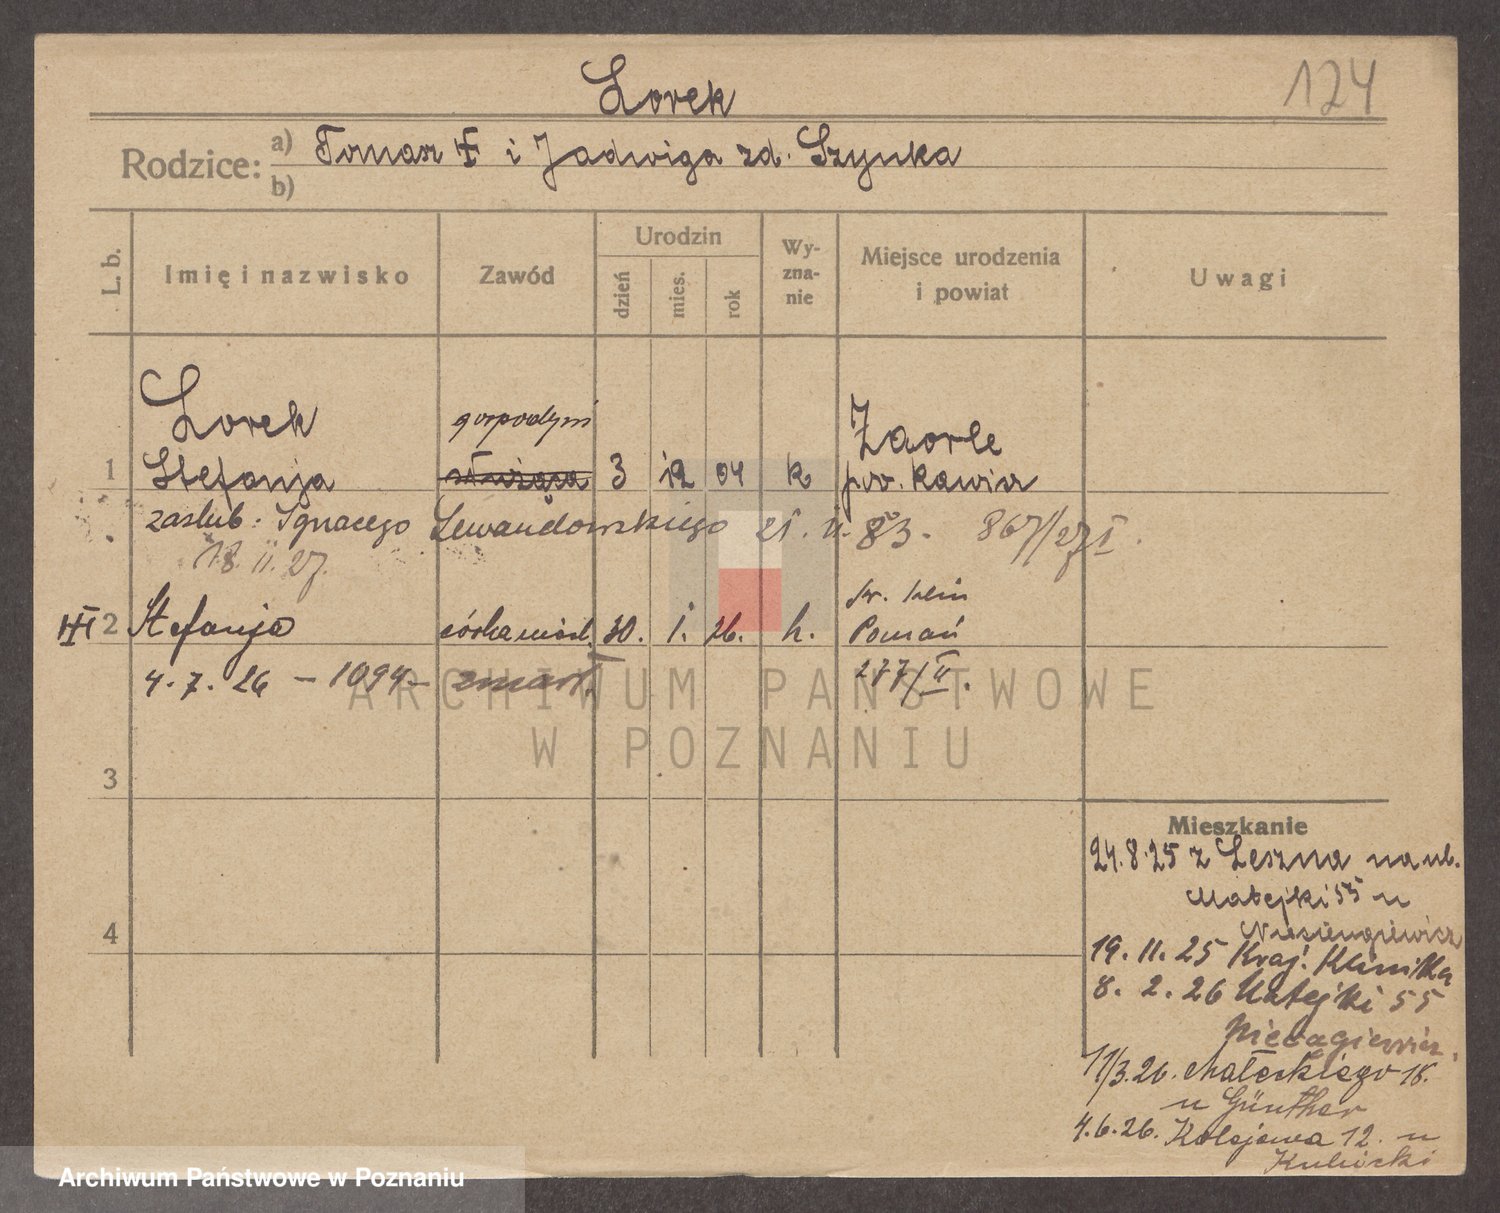 124
Lorek
Rodzice: a) Tomasz ✝ i Jadwiga zd. Szynka
b)
L. b.
Imię i nazwisko
Zawód
Urodzin
dzień
mies.
rok
Wy-
zna-
nie
Miejsce urodzenia
i powiat
Uwagi
Lorek
gospodyni
Zaorle
1 Stefanja służąca 3 12 04 k pow. Rawicz
zaślub. Ignacego Lewandowskiego 21. 83. 867/27 I.
18. II. 27.
kr. klin
2 Stefanja córka 30. 1. 26. k. Poznań
4. 7. 26 – 1094 – zmarła 277/II.
3
4
Mieszkanie
24.8.25 z Leszna na ul.
Matejki 55 u
19. 11. 25 Kraj. Klinika
8. 2. 26 Matejki 55
11/3.26. Małeckiego 18.
u Günther
4.6.26. Kolejowa 12. u
Kubicki
ARCHIWUM PAŃSTWOWE
W POZNANIU
Archiwum Państwowe w Poznaniu